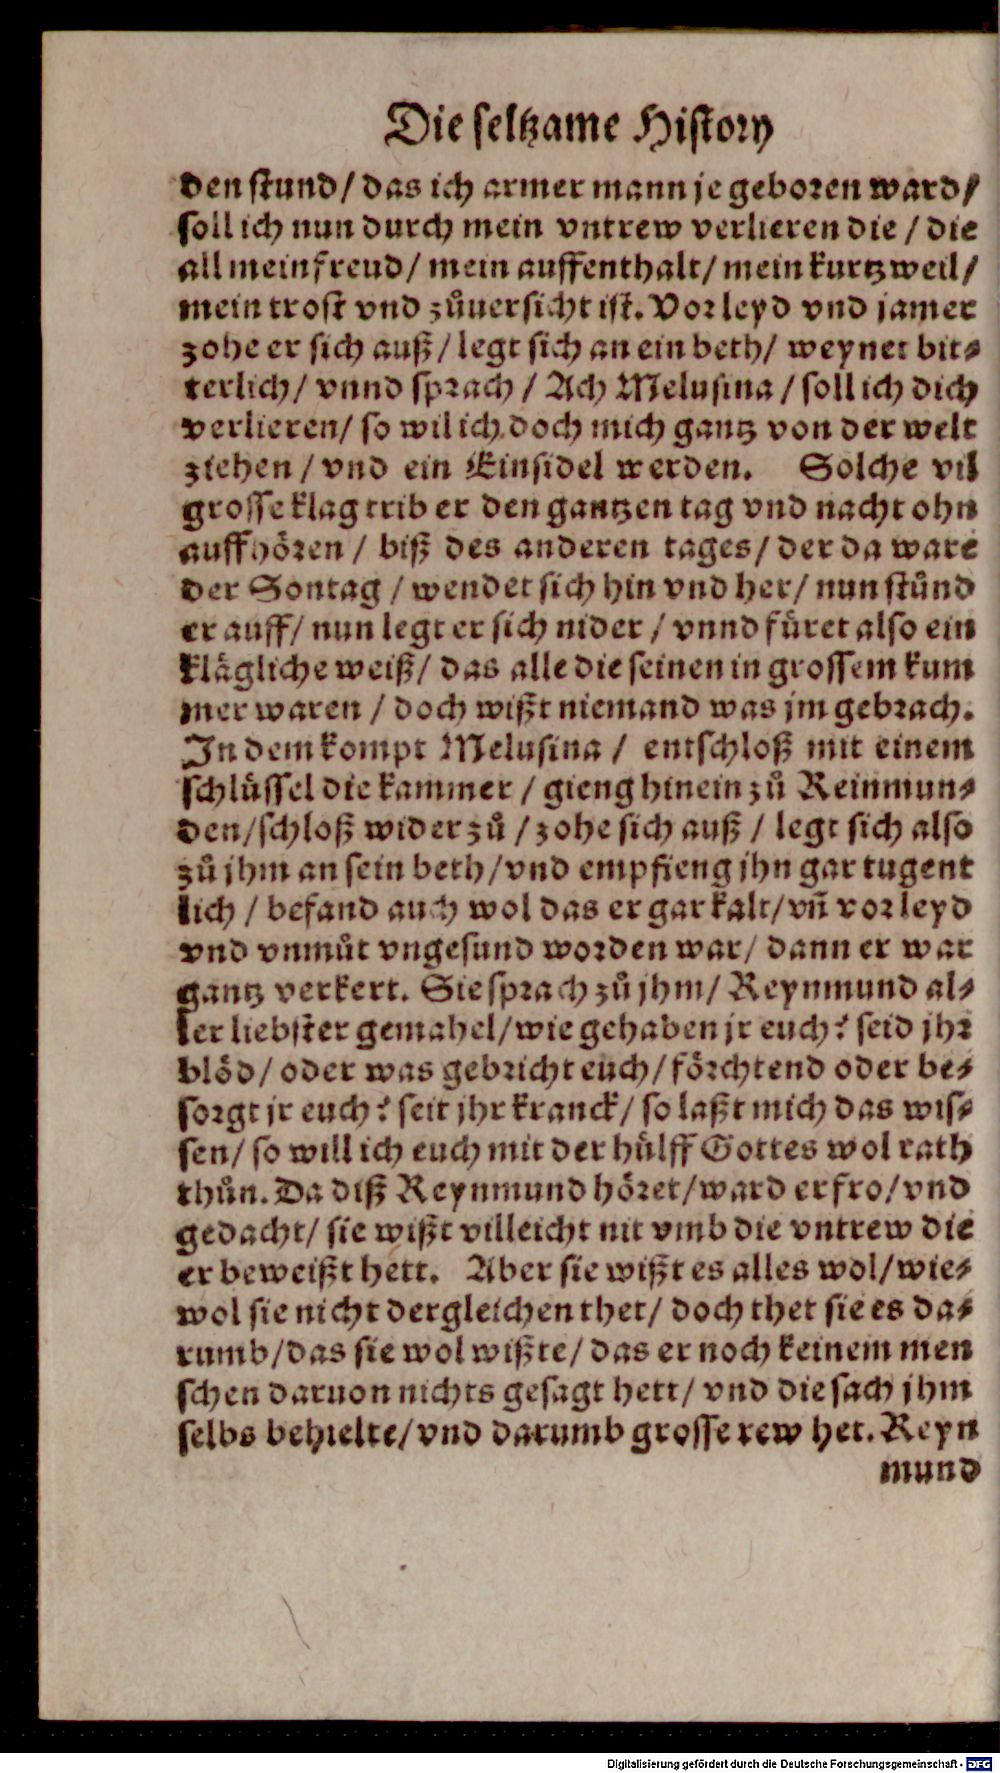 Die seltzame History
den stund/ das ich armer mann je geboren ward/
soll ich nun durch mein vntrew verlieren die / die
all mein freud/ mein auffenthalt/ mein kurtzweil/
mein trost vnd zůuersicht ist. Vor leyd vnd jamer
zohe er sich auß / legt sich an ein beth/ weynet bit⸗
terlich/ vnnd sprach / Ach Melusina / soll ich dich
verlieren/ so wil ich doch mich gantz von der welt
ziehen / vnd ein Einsidel werden. Solche vil
grosse klag trib er den gantzen tag vnd nacht ohn
auffhören / biß des anderen tages/ der da ware
der Sontag / wendet sich hin vnd her/ nun stůnd
er auff/ nun legt er sich nider / vnnd füret also ein
klägliche weiß/ das alle die seinen in grossem kum
mer waren / doch wißt niemand was jm gebrach.
In dem kompt Melusina / entschloß mit einem
schlüssel die kammer / gieng hinein zů Reinmun⸗
den/schloß wider zů / zohe sich auß / legt sich also
zů jhm an sein beth/vnd empfieng jhn gar tugent
lich / befand auch wol das er gar kalt/ vñ vor leyd
vnd vnmůt vngesund worden war/ dann er war
gantz verkert. Sie sprach zů jhm/ Reynmund al⸗
ler liebster gemahel/wie gehaben jr euch? seid jhr
blöd/ oder was gebricht euch/ förchtend oder be⸗
sorgt jr euch? seit jhr kranck/ so laßt mich das wis⸗
sen/ so will ich euch mit der hülff Gottes wol rath
thůn. Da diß Reynmund höret/ward er fro/ vnd
gedacht/ sie wißt villeicht nit vmb die vntrew die
er beweißt hett. Aber sie wißt es alles wol/ wie⸗
wol sie nicht dergleichen thet/ doch thet sie es da⸗
rumb/das sie wol wißte/ das er noch keinem men
schen daruon nichts gesagt hett/ vnd die sach jhm
selbs behielte/ vnd darumb grosse rew het. Reyn
mund
Digitalisierung gefördert durch die Deutsche Forschungsgemeinschaft - DFG